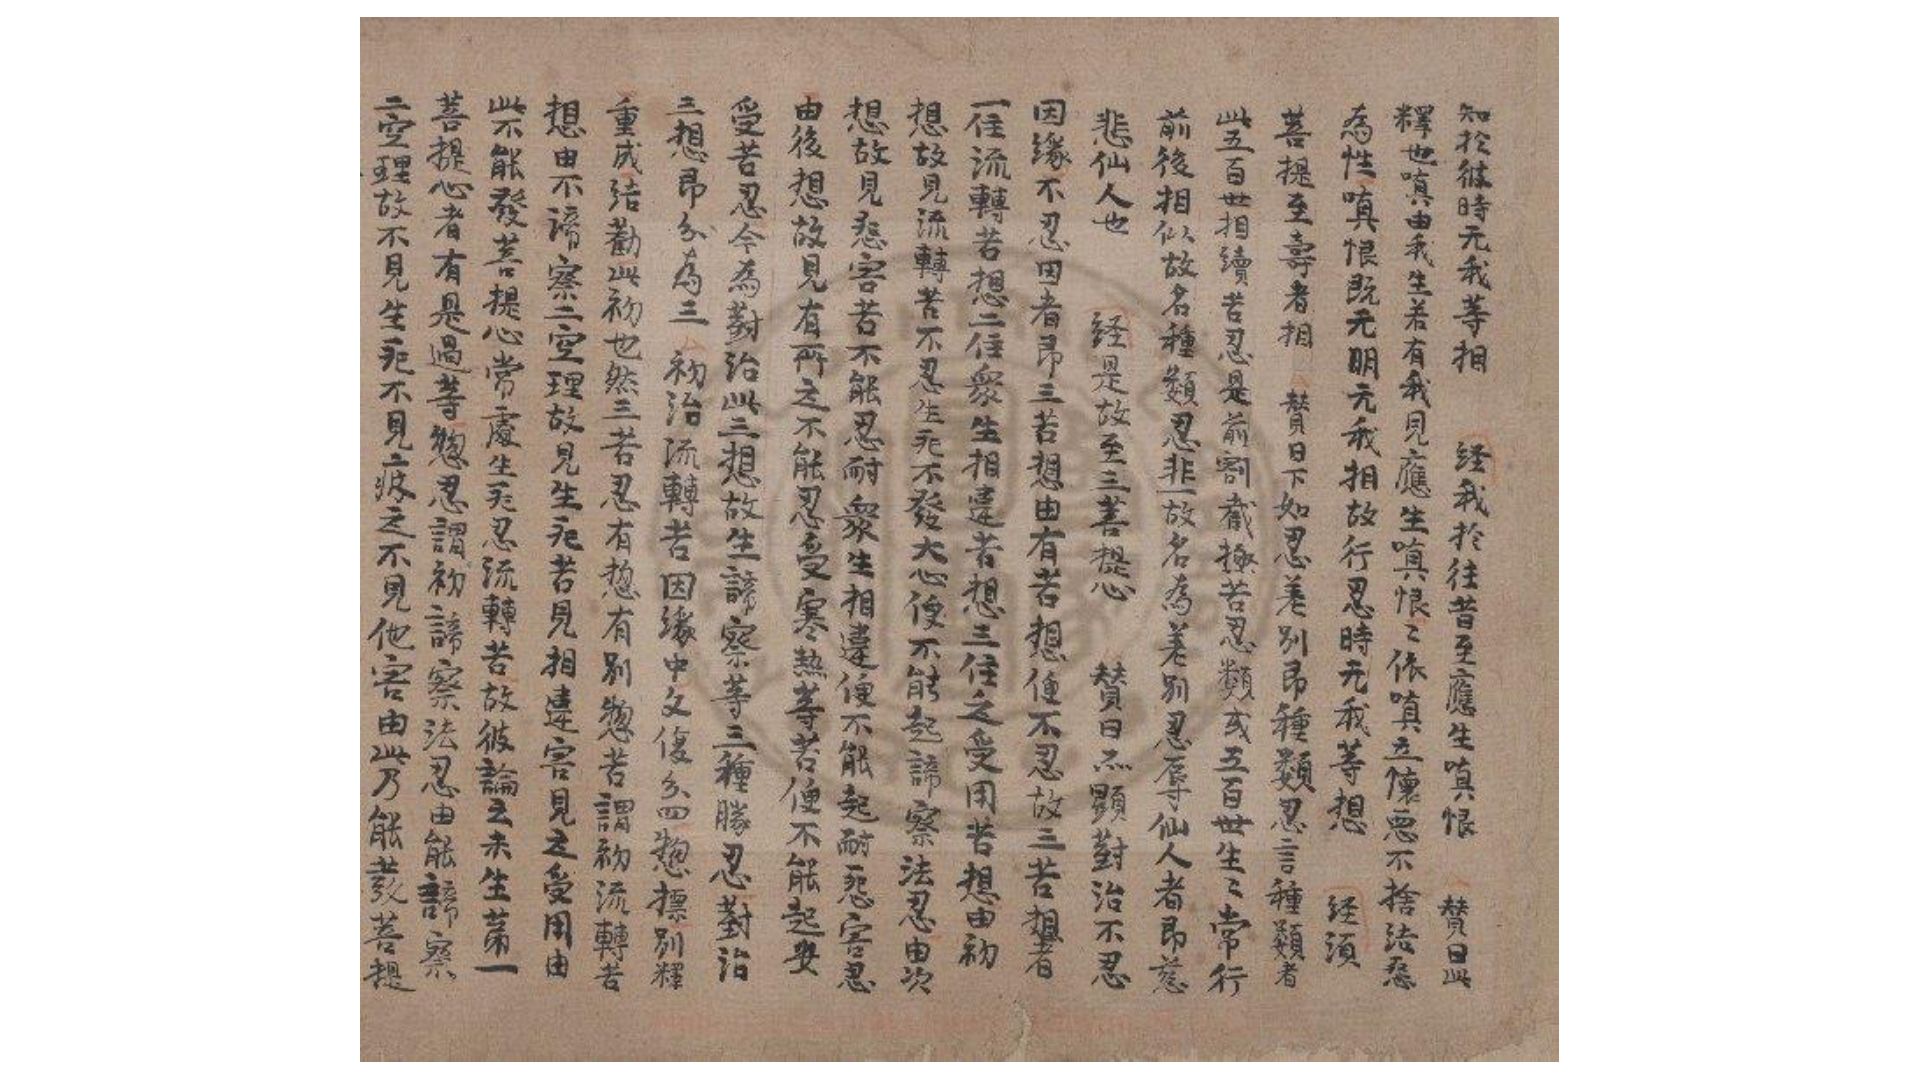 知於彼時无我等相 経我於往昔至應生嗔恨 賛曰此
釋也嗔由我生若有我見應生嗔恨〻依嗔立懷惡不捨結惡
為性嗔恨既无明无我相故行忍時无我等想 経須
菩提至壽者相 賛曰下如忍差別即種類忍言種類者
此五百世相續苦忍是前割截極苦忍類或五百世生〻常行
前後相似故名種類忍非一故名為差別忍辱仙人者即慈
悲仙人也 経是故至三菩提心 賛曰此顯對治不忍
因緣不忍因者即三苦想由有苦想便不忍故三苦想者
一住流轉苦想二住衆生相違苦想三住乏受用苦想由初
想故見流轉苦不忍生死不發大心便不能起諦察法忍由次
想故見怨害苦不能忍耐衆生相違便不能起耐怨害忍
由後想故見有所乏不能忍受寒熱等苦便不能起安
受苦忍今為對治此三想故生諦察等三種勝忍對治
三想即分為三 初治流轉苦因緣中文復分四惣摽別釋
重成結勸此初也然三苦忍有惣有別惣苦謂初流轉苦
想由不諦察二空理故見生死苦見相違害見乏受用由
此不能發菩提心常處生死忍流轉苦故彼論云未生第一
菩提心者有是過等惣忍謂初諦察法忍由能諦察
二空理故不見生死不見疲乏不見他害由此乃能發菩提